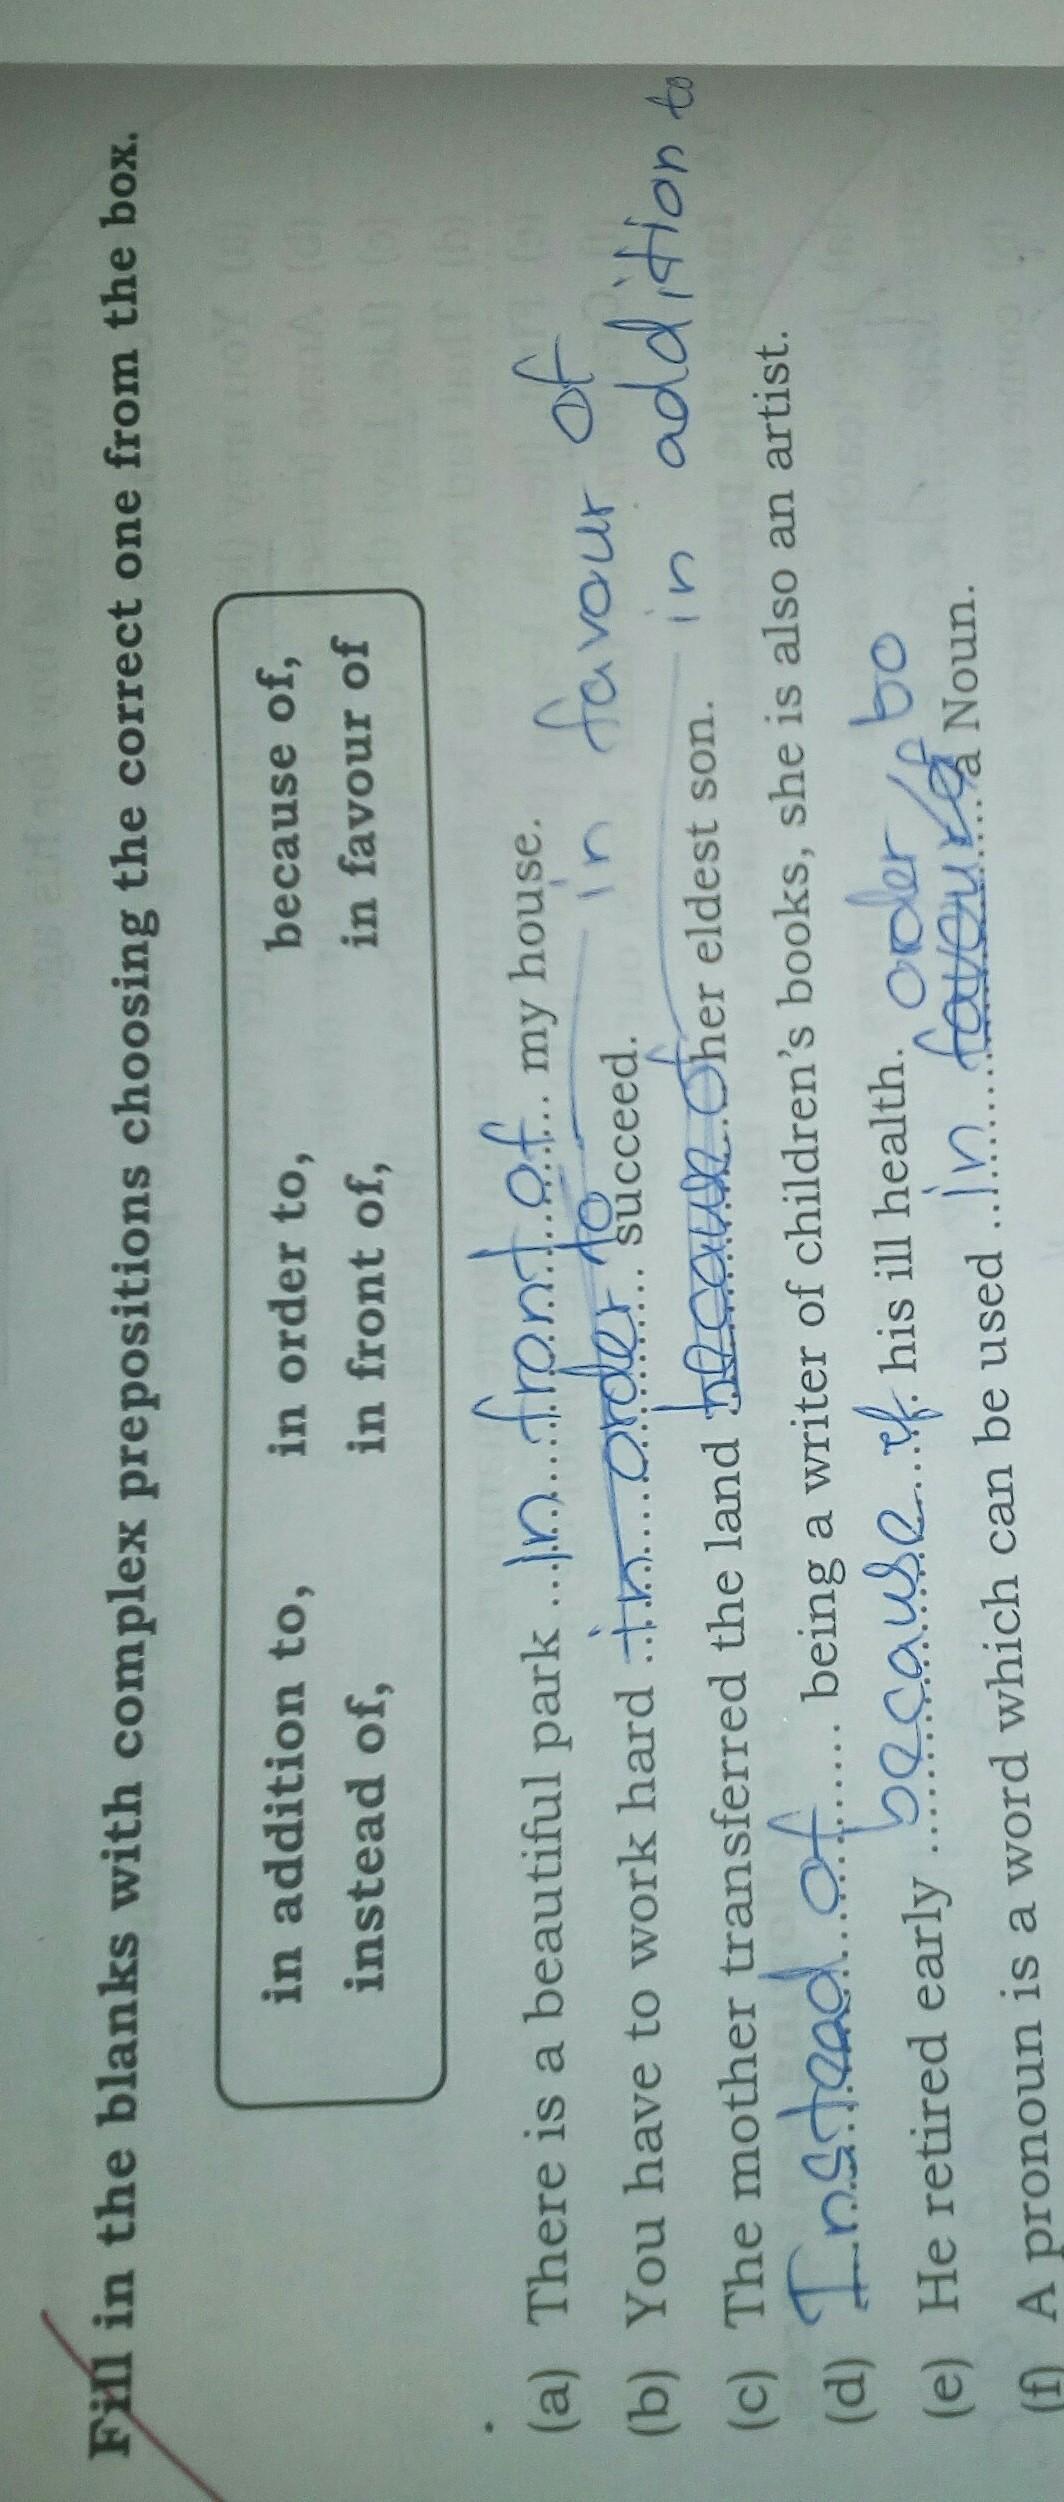 Fill in the blanks with complex prepositions choosing the correct one from the box.
in addition to, in order to, because of,
instead of, in front of, in favour of
(a) There is a beautiful park ... In front of ... my house.
(b) You have to work hard in order to succeed. in favour of
(c) The mother transferred the land because of her eldest son. in addition to
(d) Instead of being a writer of children's books, she is also an artist.
(e) He retired early because of his ill health.
(f) A pronoun is a word which can be used In favour of a Noun. order